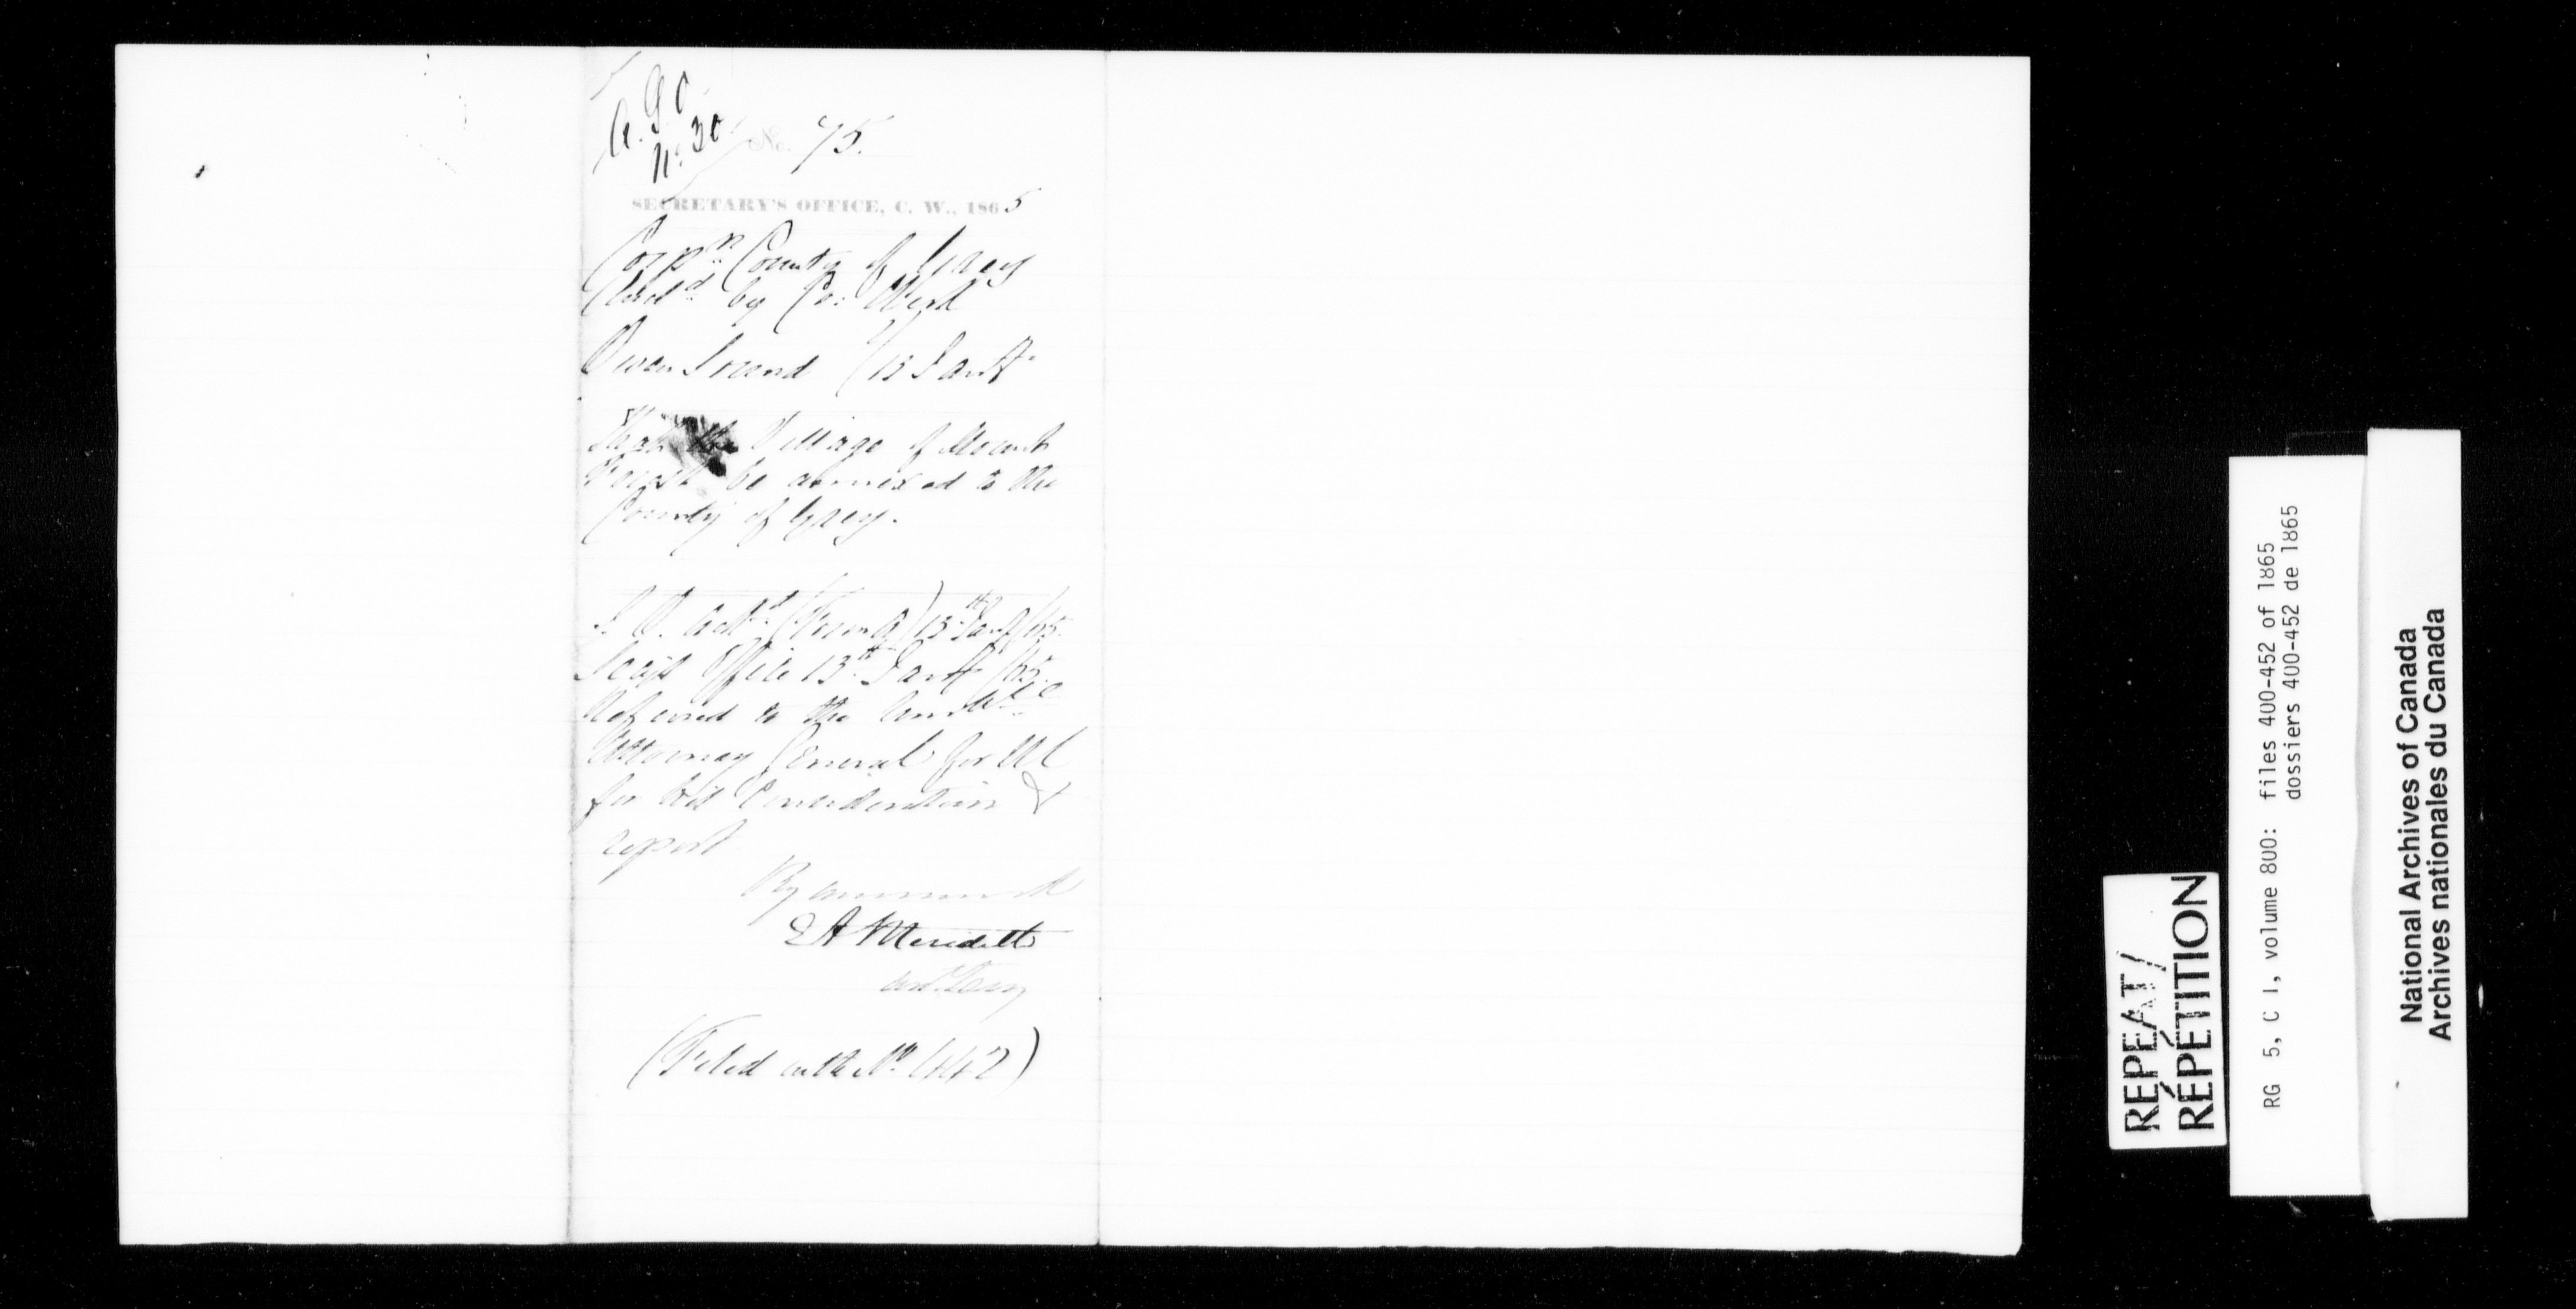 A. G. O.
No. 30
No. 75.
SECRETARY'S OFFICE, C. W., 1865
Corpn. County of Grey
by Co: Clerk
Owen Sound
That the Village of Mount
Forest be annexed to the
County of Grey.
Ackd. (Form A) 13th Jany/65.
Secys Office 13th Jany /65.
Referred to the Honble
Attorney General for UC
for his Consideration &
report
By command
E A Meredith
Asst. Secy
(Filed with No. 442)
REPEAT /
RÉPÉTITION
RG 5, C 1, volume 800: files 400-452 of 1865
dossiers 400-452 de 1865
National Archives of Canada
Archives nationales du Canada